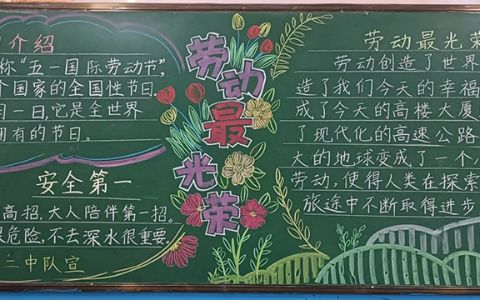 介绍
称“五一国际劳动节”,
个国家的全国性节日。
月一日,它是全世界
拥有的节日。
安全第一
高招,大人陪伴第一招。
危险,不去深水很重要。
二中队宣
劳动最光荣
劳动最光荣
劳动创造了世界
造了我们今天的幸福
成了今天的高楼大厦
了现代化的高速公路
大的地球变成了一个
劳动,使得人类在探索
旅途中不断取得进步